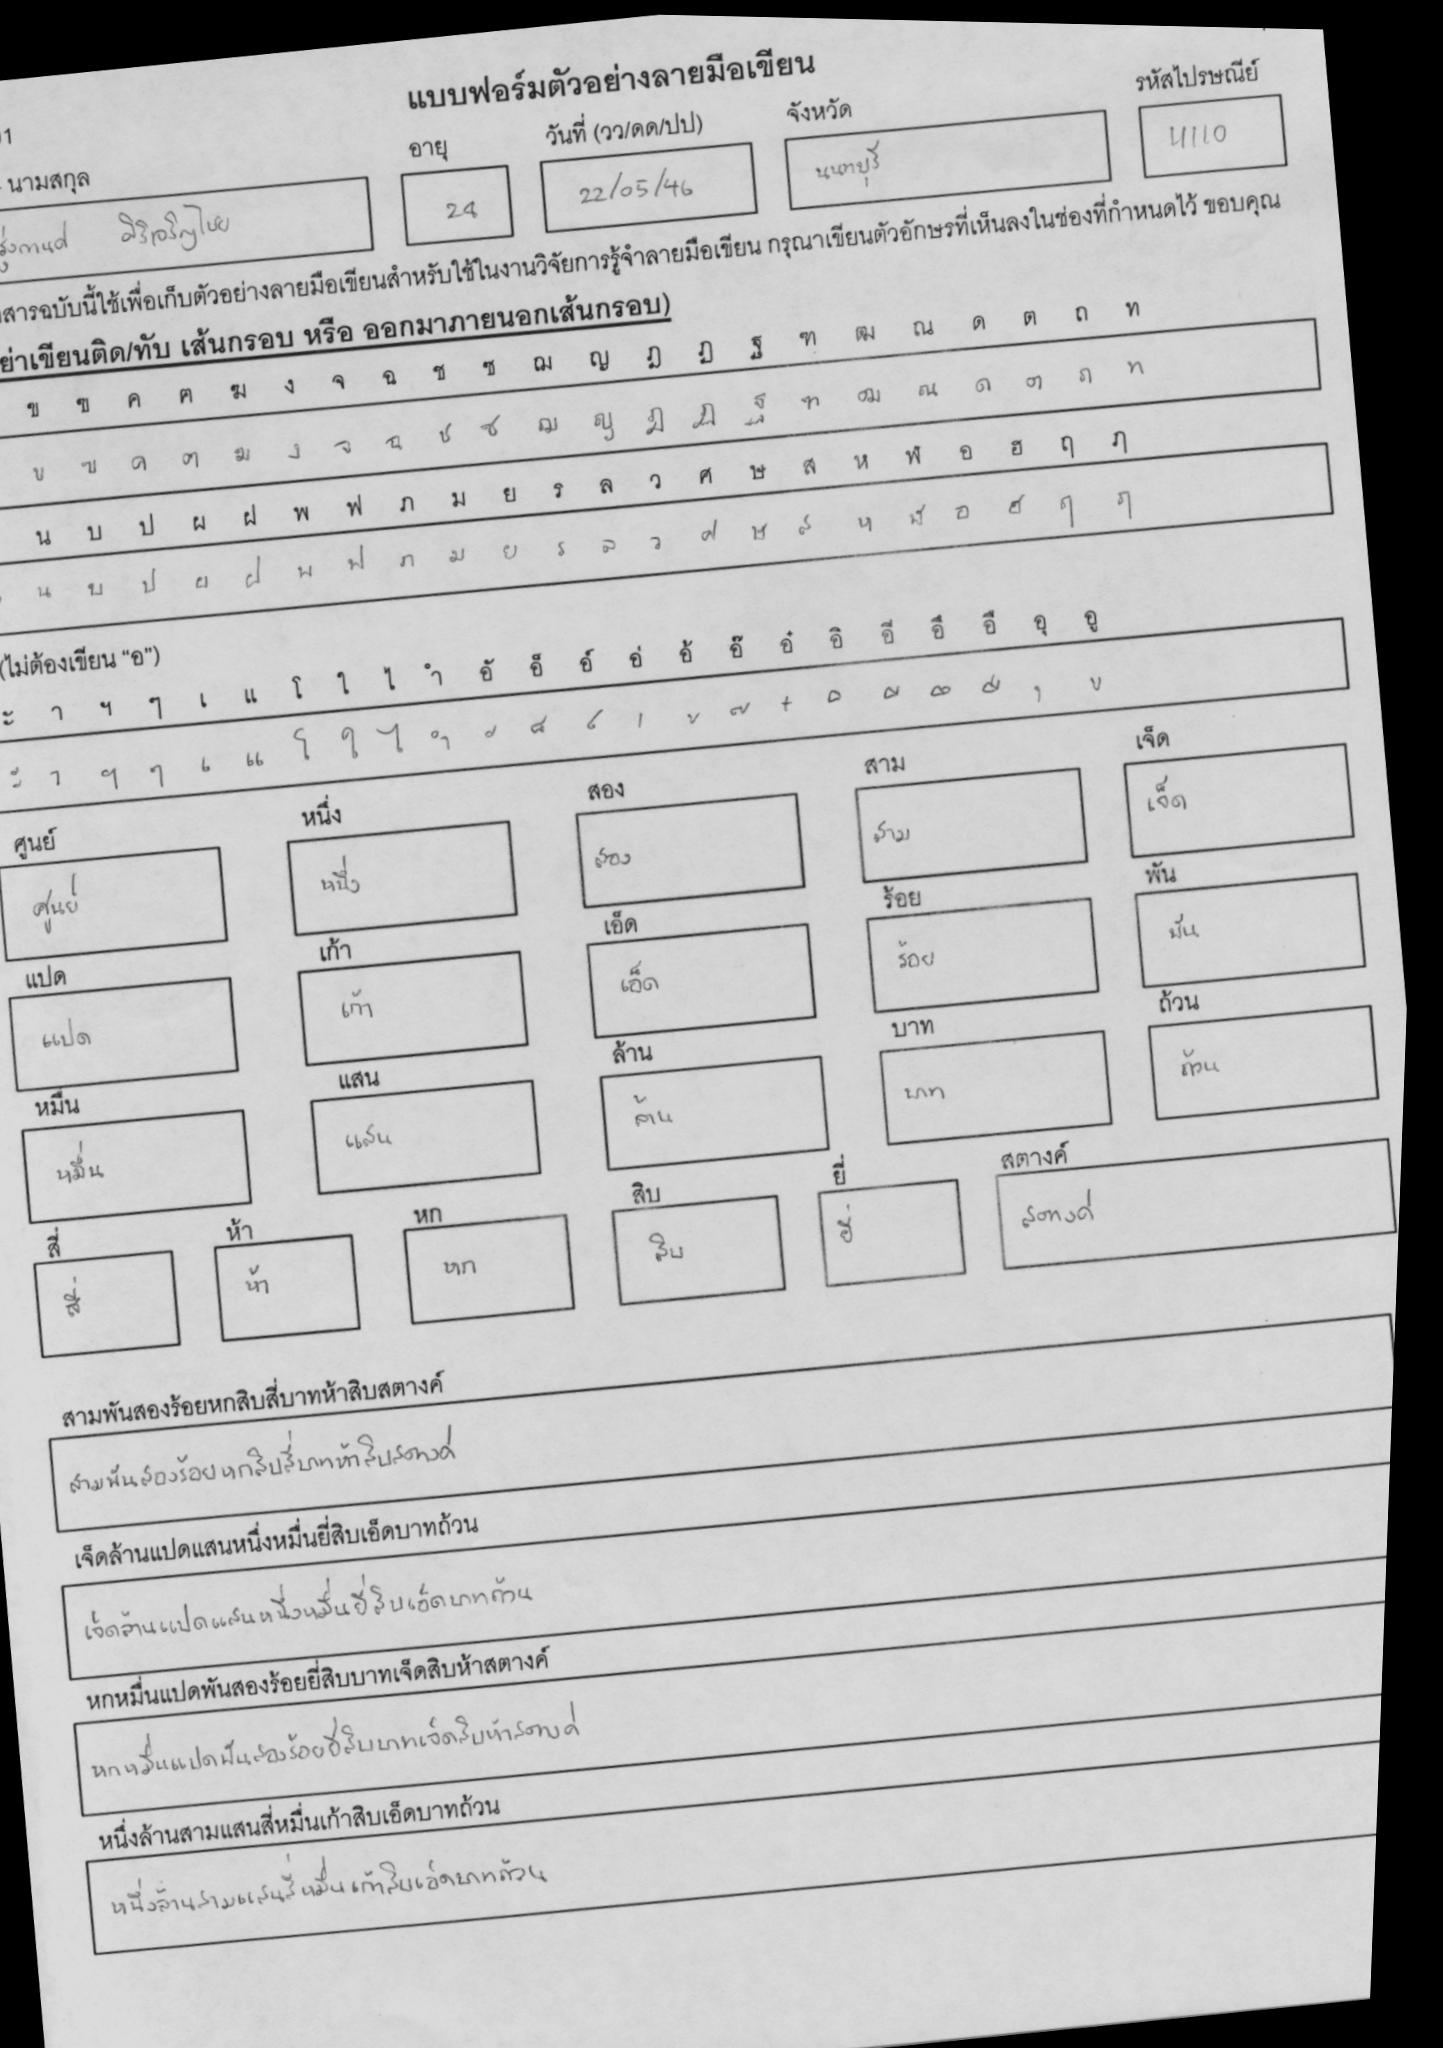 แบบฟอร์มตัวอย่างลายมือเขียน
นามสกุล อายุ วันที่ (วว/ดด/ปป) จังหวัด รหัสไปรษณีย์
24 22/05/46 นนทบุรี 11110
สารฉบับนี้ใช้เพื่อเก็บตัวอย่างลายมือเขียนสำหรับใช้ในงานวิจัยการรู้จำลายมือเขียน กรุณาเขียนตัวอักษรที่เห็นลงในช่องที่กำหนดไว้ ขอบคุณ
ย่าเขียนติด/ทับ เส้นกรอบ หรือ ออกมาภายนอกเส้นกรอบ)
ข ฃ ค ฅ ฆ ง จ ฉ ช ซ ฌ ญ ฎ ฏ ฐ ฑ ฒ ณ ด ต ถ ท
ข ฃ ค ฅ ฆ ง จ ฉ ช ซ ฌ ญ ฎ ฏ ฐ ฑ ฒ ณ ด ต ถ ท
น บ ป ผ ฝ พ ฟ ภ ม ย ร ล ว ศ ษ ส ห ฬ อ ฮ ฤ ฦ
น บ ป ผ ฝ พ ฟ ภ ม ย ร ล ว ศ ษ ส ห ฬ อ ฮ ฤ ฦ
(ไม่ต้องเขียน “อ”)
ะ า ฯ ๆ เ แ โ ใ ไ ำ อั อ็ อ์ อ่ อ้ อ๊ อ๋ อิ อี อึ อื อุ อู
ะ า ฯ ๆ เ แ โ ใ ไ ำ ั ็ ์ ่ ้ ๊ ๋ ิ ี ึ ื ุ ู
ศูนย์ หนึ่ง สอง สาม เจ็ด
ศูนย์ หนึ่ง สอง สาม เจ็ด
แปด เก้า เอ็ด ร้อย พัน
แปด เก้า เอ็ด ร้อย พัน
หมื่น แสน ล้าน บาท ถ้วน
หมื่น แสน ล้าน บาท ถ้วน
สี่ ห้า หก สิบ ยี่ สตางค์
สี่ ห้า หก สิบ ยี่ สตางค์
สามพันสองร้อยหกสิบสี่บาทห้าสิบสตางค์
สามพันสองร้อยหกสิบสี่บาทห้าสิบสตางค์
เจ็ดล้านแปดแสนหนึ่งหมื่นยี่สิบเอ็ดบาทถ้วน
เจ็ดล้านแปดแสนหนึ่งหมื่นยี่สิบเอ็ดบาทถ้วน
หกหมื่นแปดพันสองร้อยยี่สิบบาทเจ็ดสิบห้าสตางค์
หกหมื่นแปดพันสองร้อยยี่สิบบาทเจ็ดสิบห้าสตางค์
หนึ่งล้านสามแสนสี่หมื่นเก้าสิบเอ็ดบาทถ้วน
หนึ่งล้านสามแสนสี่หมื่นเก้าสิบเอ็ดบาทถ้วน